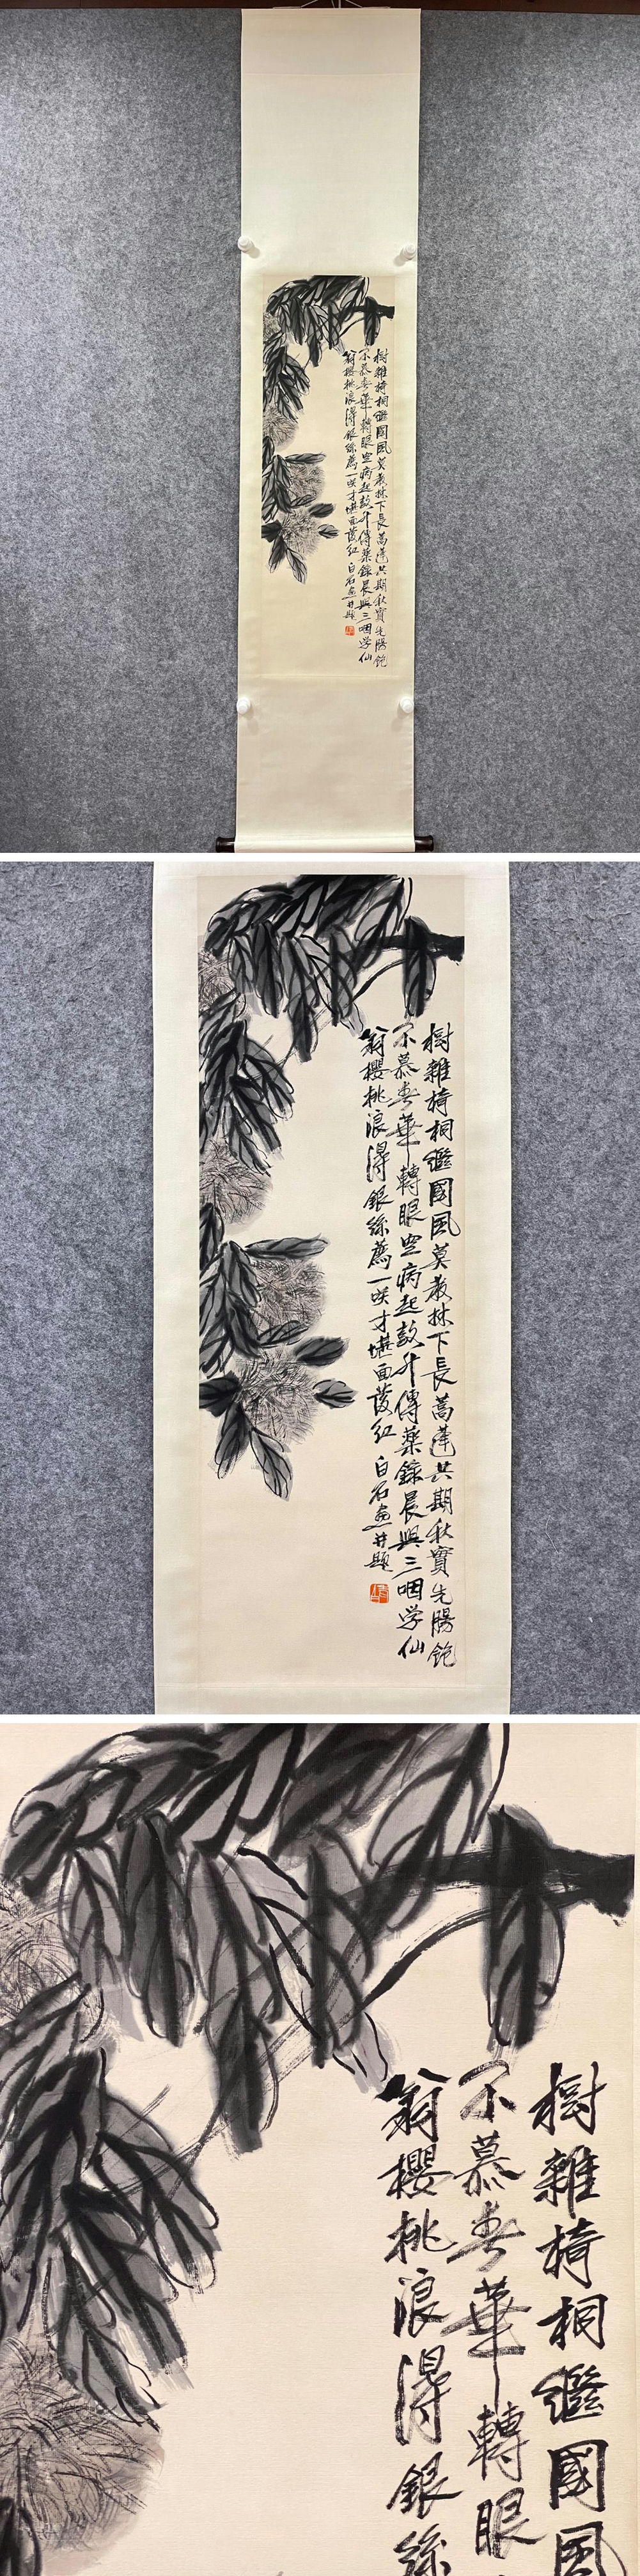 樹雜椅桐繼國風莫教林下長蒿蓬共期秋實充腸飽
不慕春華轉眼空病起數升傳藥錄晨興三咽学仙
翁櫻桃浪得銀絲薦一咲才堪面發紅 白石画并題
樹雜椅桐繼國風莫教林下長蒿蓬共期秋實充腸飽
不慕春華轉眼空病起數升傳藥錄晨興三咽学仙
翁櫻桃浪得銀絲薦一咲才堪面發紅 白石画并題
樹雜椅桐繼國風
不慕春華轉眼
翁櫻桃浪得銀絲